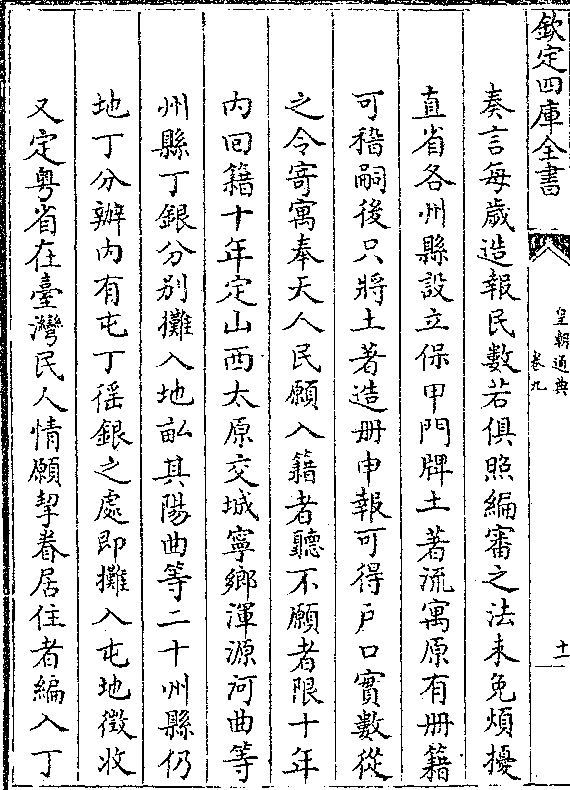 欽定四庫全書
皇朝通典
卷九
十一
奏言每歲造報民數若俱照編審之法未免煩擾
直省各州縣設立保甲門牌土著流寓原有册籍
可稽嗣後只將土著造册申報可得戶口實數從
之令寄寓奉天人民願入籍者聽不願者限十年
内回籍十年定山西太原交城寧鄉渾源河曲等
州縣丁銀分别攤入地畝其陽曲等二十州縣仍
地丁分辦内有屯丁徭銀之處即攤入屯地徴收
又定粤省在臺灣民人情願挈眷居住者編入丁